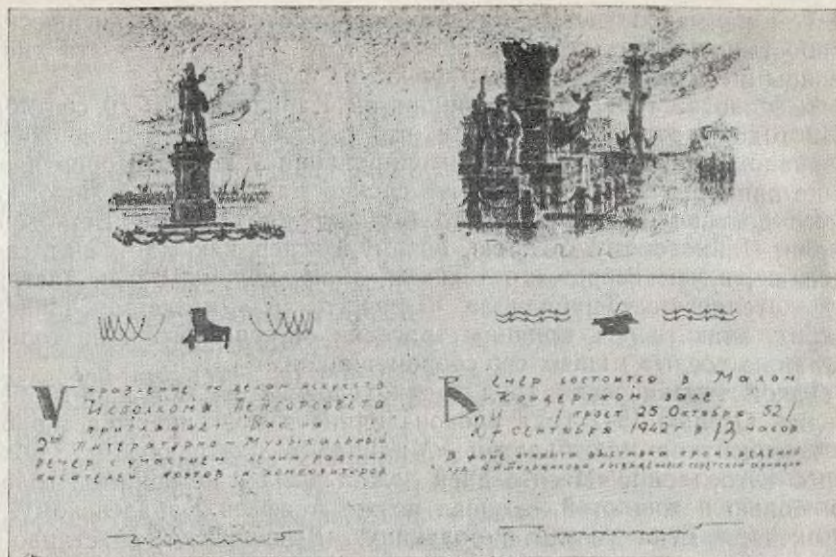 Управление по делам искусств
Исполкома Ленгорсовета
приглашает Вас на
2ой Литературно-Музыкальный
вечер с участием ленинградских
писателей, поэтов и композиторов
Вечер состоится в Малом
Концертном зале
25 Октября, 52/
Сентября 1942 г в часов
В фойе открыта выставка произведений